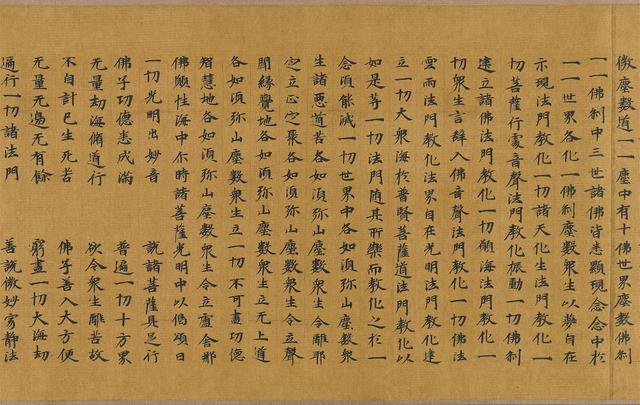 微塵數道一一塵中有十佛世界塵數佛刹
一一佛刹中三世諸佛皆悉顯現念念中於
一一世界各化一佛刹塵數衆生以夢自在
示現法門教化一切諸天化生法門教化一
切菩薩行處音聲法門教化振動一切佛刹
建立諸佛法門教化一切願海法門教化一
切衆生言辭入佛音聲法門教化一切佛法
雲雨法門教化法界自在光明法門教化建
立一切大衆海於普賢菩薩道法門教化以
如是等一切法門隨其所樂而教化之於一
念須能滅一切世界中各如須弥山塵數衆
生諸惡道苦各如須弥山塵數衆生令離耶
定立正定聚各如須弥山塵數衆生令立聲
聞緣覺地各如須弥山塵數衆生立无上道
各如須弥山塵數衆生立一切不可盡功德
智慧地各如須弥山塵數衆生令立盧舍那
佛願性海中尒時諸菩薩光明中以偈頌曰
一切光明出妙音　說諸菩薩具足行
佛子功德悉成滿　普遍一切十方界
无量劫海脩道行　欲令衆生離苦故
不自計已生死苦　佛子善入大方便
无量无邊无有餘　窮盡一切大海劫
遍行一切諸法門　善說微妙寂靜法